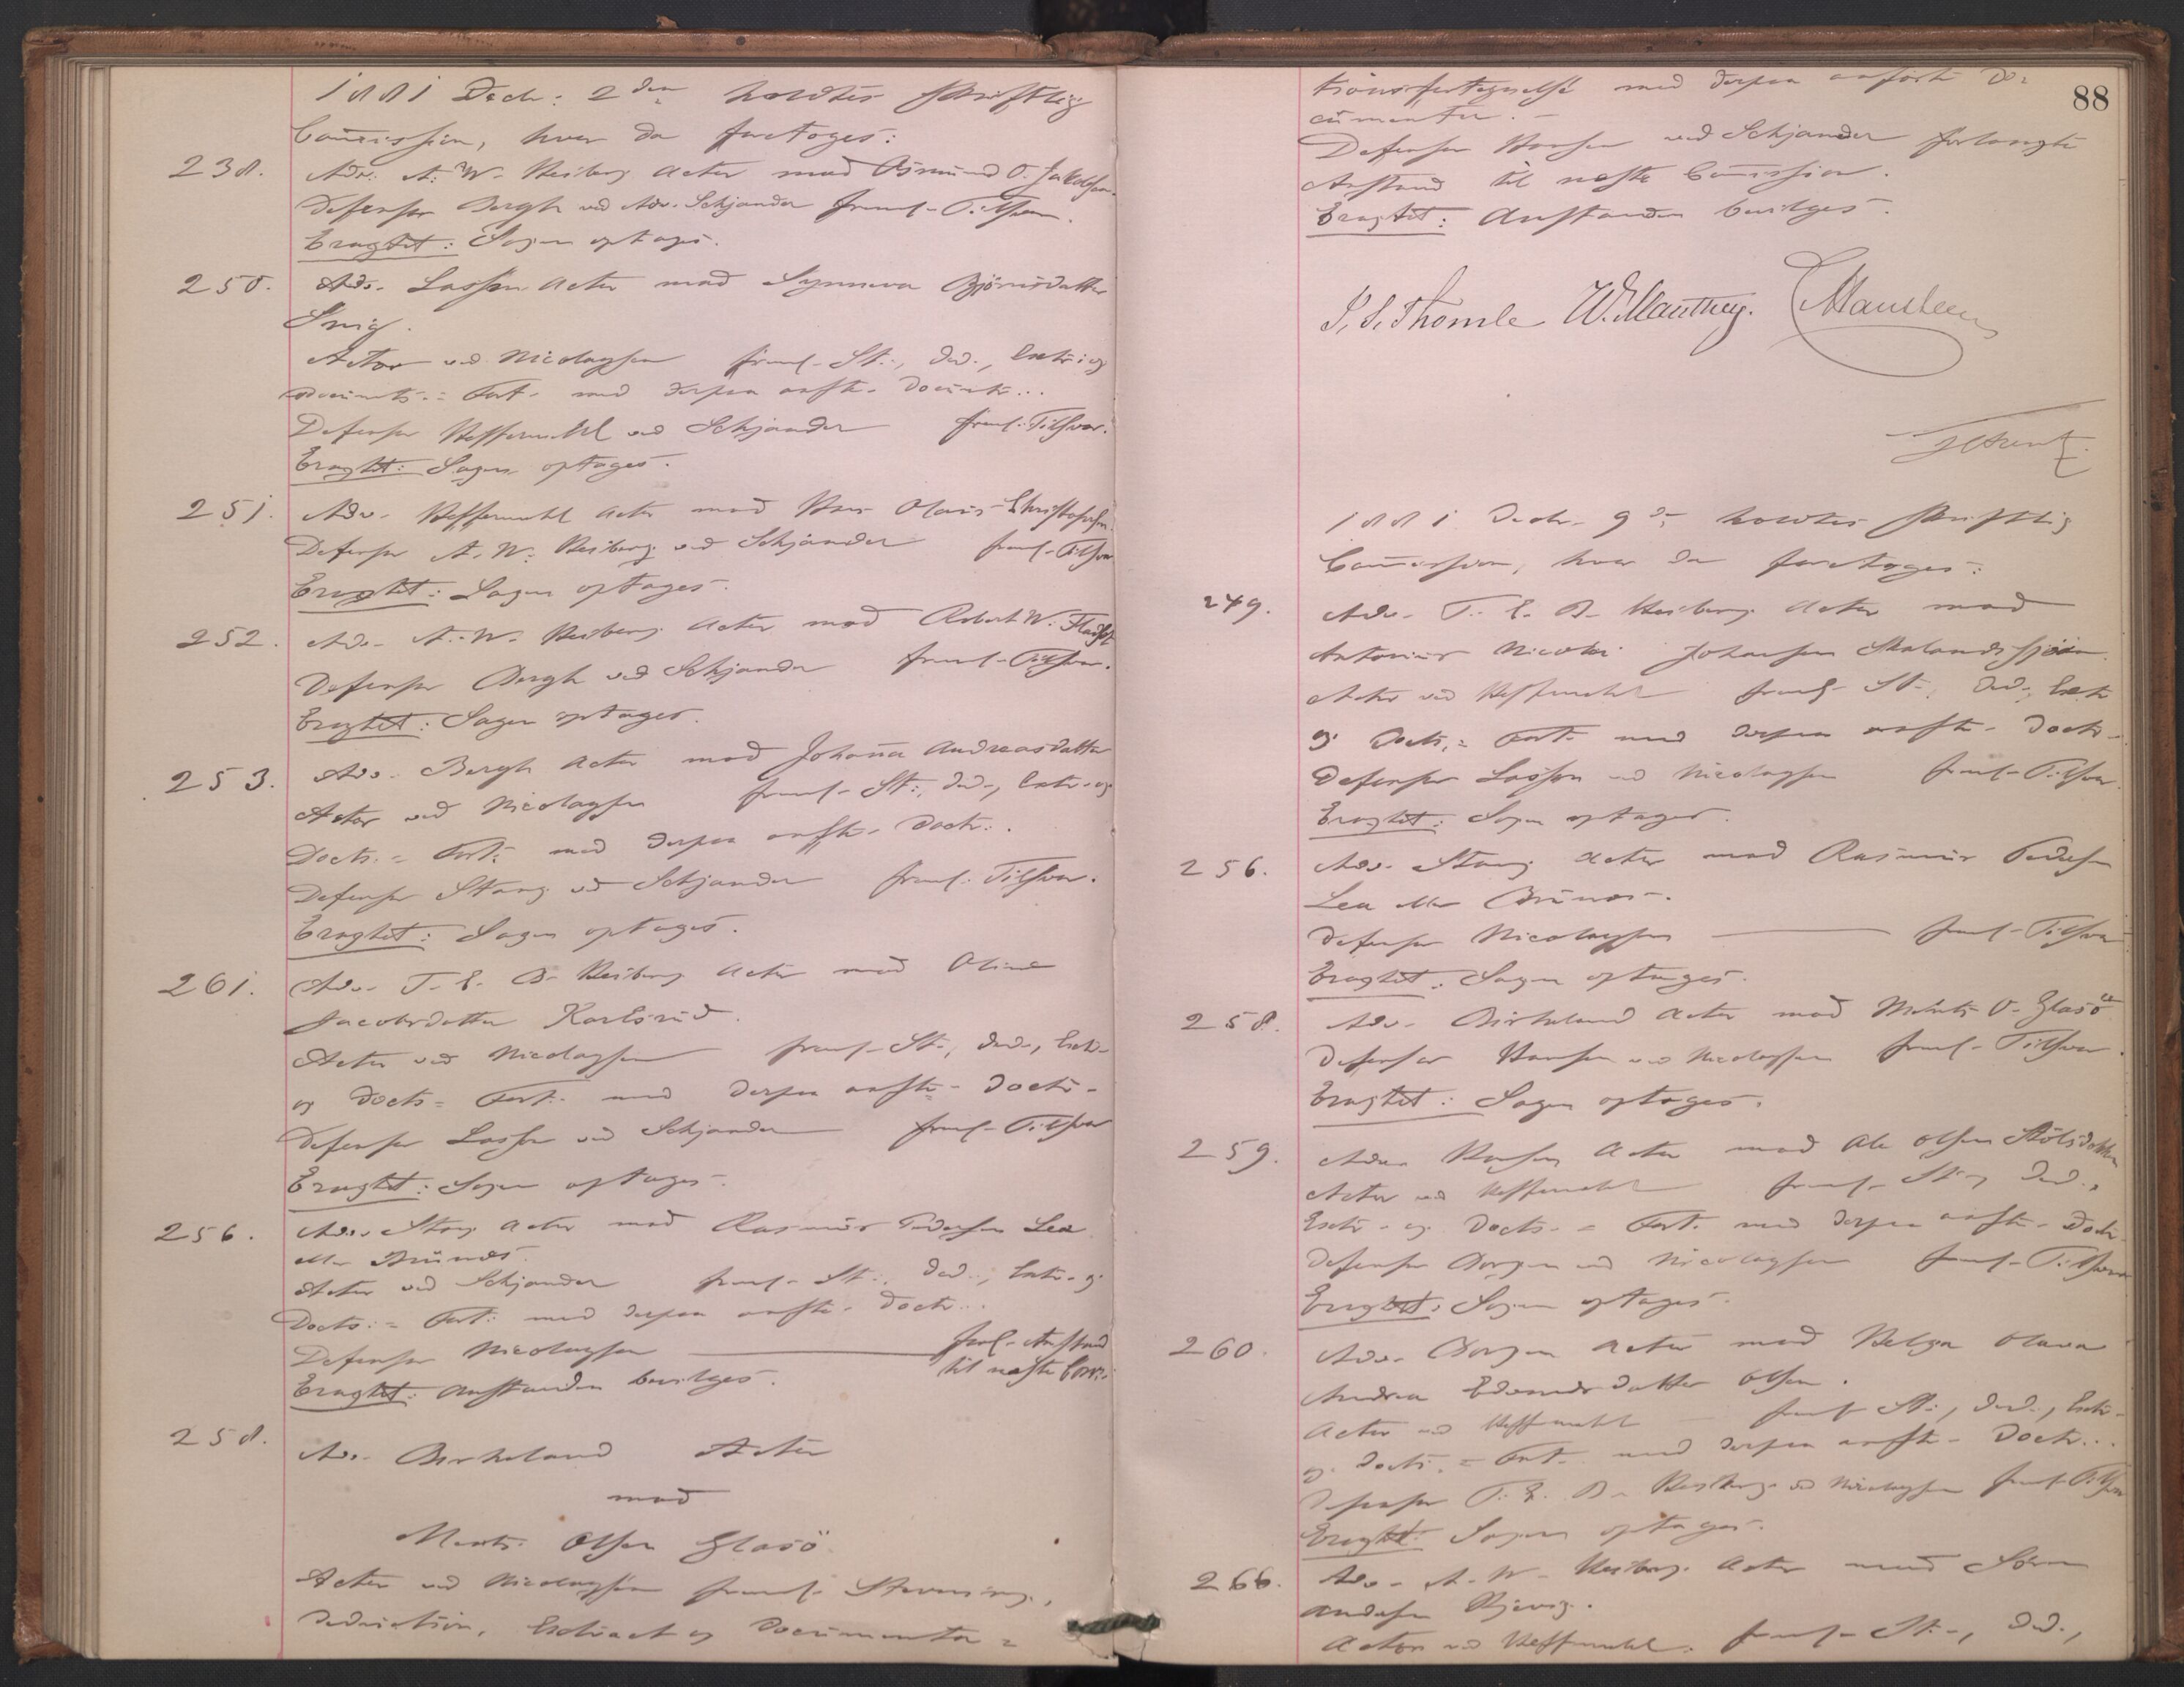 1881 Decbr: 2den holdtes skriftlig
Commission, hvor da foretoges:
238. Adv: A: W. Heiberg Actor mod Osmund O. Jakobsen.
Defensor Bergh ved Adv. Schjander freml. Tilsvar.
Eragtet: Sagen optages.
250. Adv. Lasson Actor mod Synneva Björnsdatter
Snig.
Actor ved Nicolaysen freml. St:, Ded., Extr: og
Documts:= Fort. med derpaa anfte. Docmtr...
Defensor Heffermehl ved Schjander freml. Tilsvar.
Eragtet: Sagen optages.
251. Adv. Heffermehl Actor mod Hans Olaus Christophersen.
Defensor A. W. Heiberg ved Schjander freml. Tilsvar
Eragtet: Sagen optages.
252. Adv. A. W. Heiberg Actor mod Robert W.
Defensor Bergh ved Schjander freml. Tilsvar.
Eragtet: Sagen optages.
253. Adv. Bergh Actor mod Johanna Andreasdatter
Actor ved Nicolaysen freml. St:, Ded., Extr. og
Docts.= Fort: med derpaa anfte. Doctr..
Defensor Stang ved Schjander freml. Tilsvar.
Eragtet: Sagen optages.
261. Adv. T. E. B. Heiberg Actor mod Oline
Jacobsdatter Karlsrud.
Actor ved Nicolaysen freml. St:, Ded., Extr.
og Docts= Fort: med derpaa anfte. Doctr.
Defensor Lasson ved Schjander freml. Tilsvar
Eragtet: Sagen optages.
256. Adv. Stang Actor mod Rasmus Pedersen Lea
elr Brunæs.
Actor ved Schjander freml. St:, Ded., Extr. og
Docts:= Fort: med derpaa anfte. Doctr...
Defensor Nicolaysen freml. Anstand
til næste Com:
Eragtet: Anstanden bevilges.
258. Adv. Birkeland Actor
mod
Olsen Glasö
Actor ved Nicolaysen freml. Stevning,
Deduction, Extract og Documenta=
88
tionsfortegnelse med derpaa anførte Do=
cumenter. -
Defensor Hansen ved Schjander forlangte
Anstand til næste Commission.
Eragtet: Anstanden bevilges.
J. S. Thomle W. Manthey.
1881 Decbr. 9de holdtes skriftlig
Commission, hvor da foretoges:
249. Adv. T. E. B. Heiberg Actor mod
Antonius Nicolai Johansen
Actor ved Heffermehl freml. St:, Ded., Extr
og Docts.= Fort. med derpaa anfte. Doctr.
Defensor Lasson ved Nicolaysen freml. Tilsvar.
Eragtet: Sagen optages.
256. Adv. Stang Actor mod Rasmus Pedersen
Lea elr Brunæs.
Defensor Nicolaysen freml. Tilsvar
Eragtet: Sagen optages.
258. Adv. Birkeland Actor mod O. Glasö
Defensor Hansen ved Nicolaysen freml. Tilsvar.
Eragtet: Sagen optages.
259. Adv. Hansen Actor mod Ole Olsen Stölsdokken
Actor ved Heffermehl freml. St:, Ded.,
Extr. og Docts.= Fort. med derpaa anfte. Doctr
Defensor Dorgen ved Nicolaysen freml. Tilsvar
Eragtet: Sagen optages.
260. Adv. Dorgen Actor mod Helga Olava
Andrea Edvardsdatter Olsen.
Actor ved Heffermehl freml. St:, Ded., Extr.
og Docts.= Fort. med derpaa anfte. Doctr...
Defensor T. E. B. Heiberg ved Nicolaysen freml. Tilsvar
Eragtet: Sagen optages.
266. Adv. A. W. Heiberg Actor mod Søren
Andersen
Actor ved Heffermehl. freml. St:, Ded.,